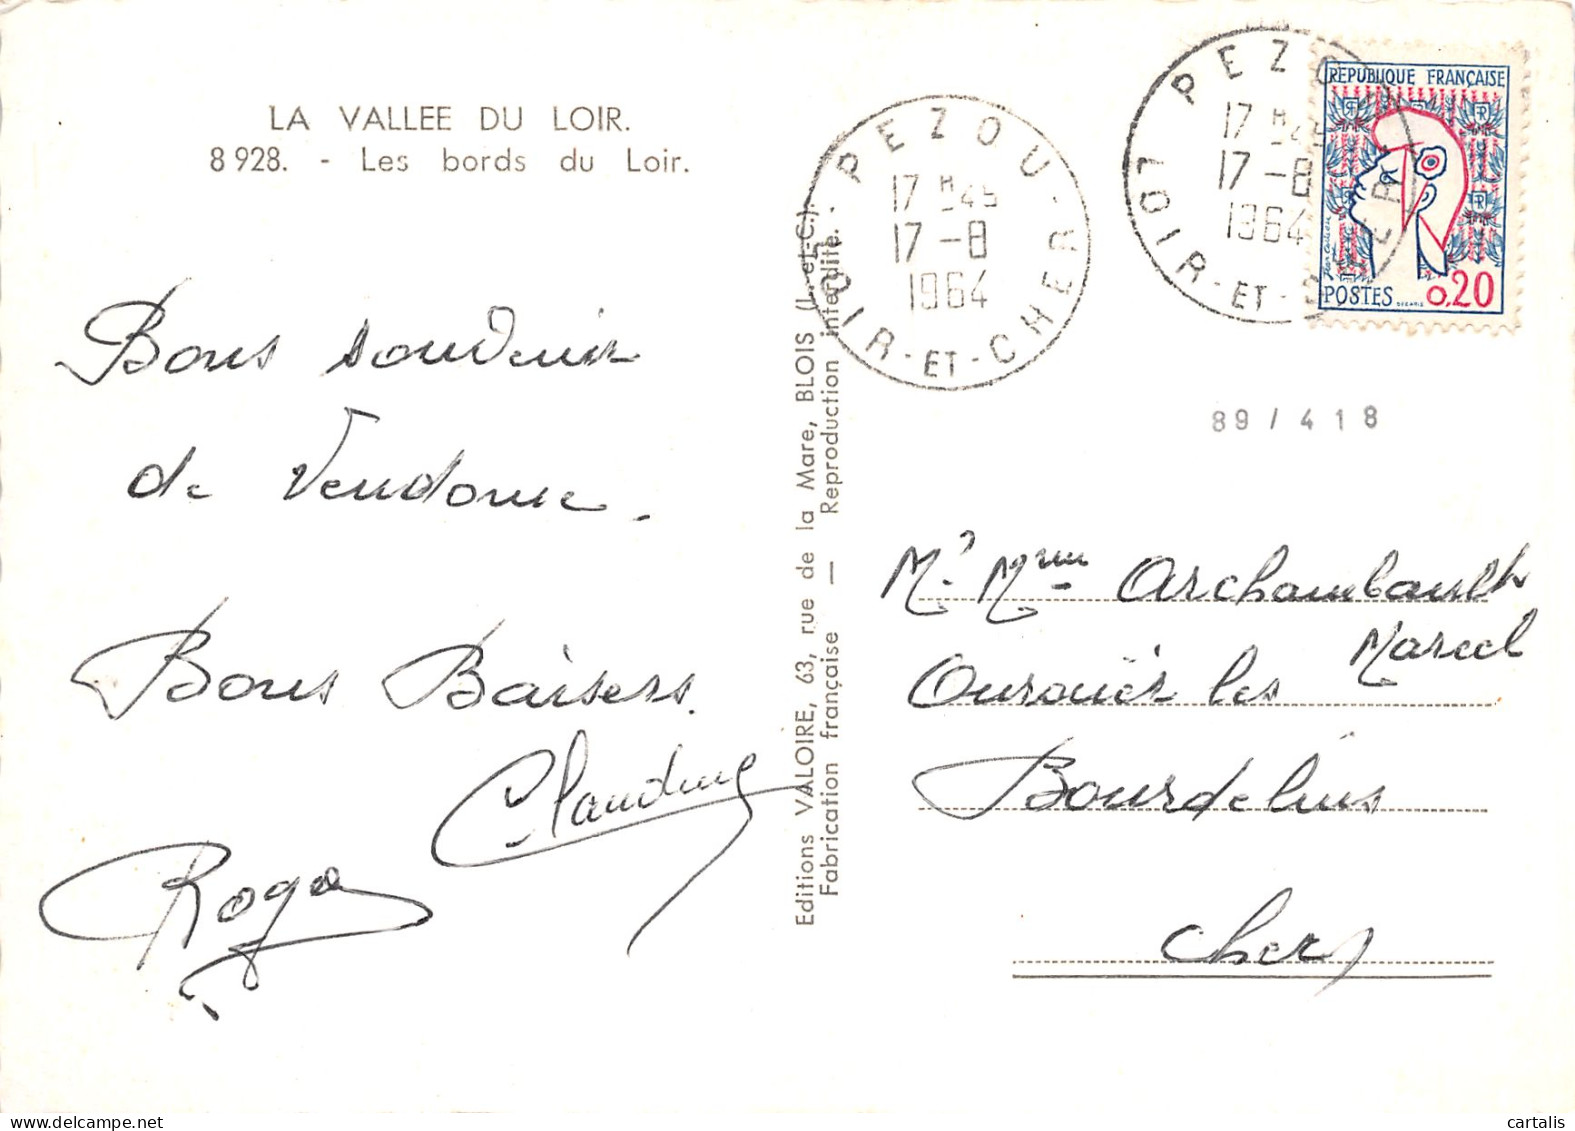 LA VALLEE DU LOIR.
8 928. - Les bords du Loir.
Bons souvenir
de Vendome.
Bons Baisers.
Claudine
Roger
Editions VALOIRE, 63, rue de la Mare, BLOIS (L.-et-C.).
Fabrication française — Reproduction interdite.
PEZOU - LOIR-ET-CHER
17 H 45
17 -8
1964
PEZOU
LOIR-ET-CHER
17 H 45
17 -8
1964
REPUBLIQUE FRANÇAISE
RF
POSTES 0,20
89 / 418
Mr Mme Archambault
Marcel
Ourouër les
Bourdelins
Cher
cartalis
delcampe.net